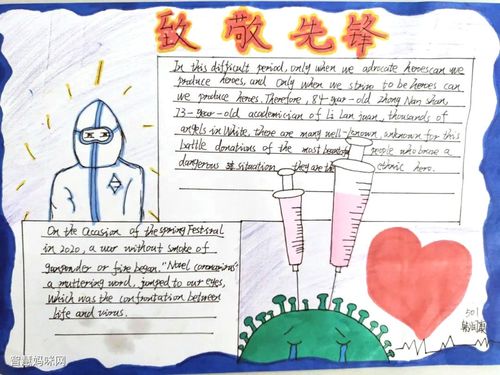 致敬先锋
In this difficult period, only when we advocate heroes can we
produce heroes, and only when we strive to be heroes can
we produce heros. Therefore, 84-year-old Zhong Nan shan,
73-year-old academician of Li Lan juan, thousands of
angels in White, there are many well-known, unknown for this
battle donations of the most people who brave a
dangerous situation, they are the ethnic hero.
On the occasion of the spring Festival
in 2020, a war without smoke of
gunpowder or fire began. "Novel coronavirus"
a muttering word, jumped to our eyes,
which was the confrontation between
life and virus.
501
智慧妈咪网